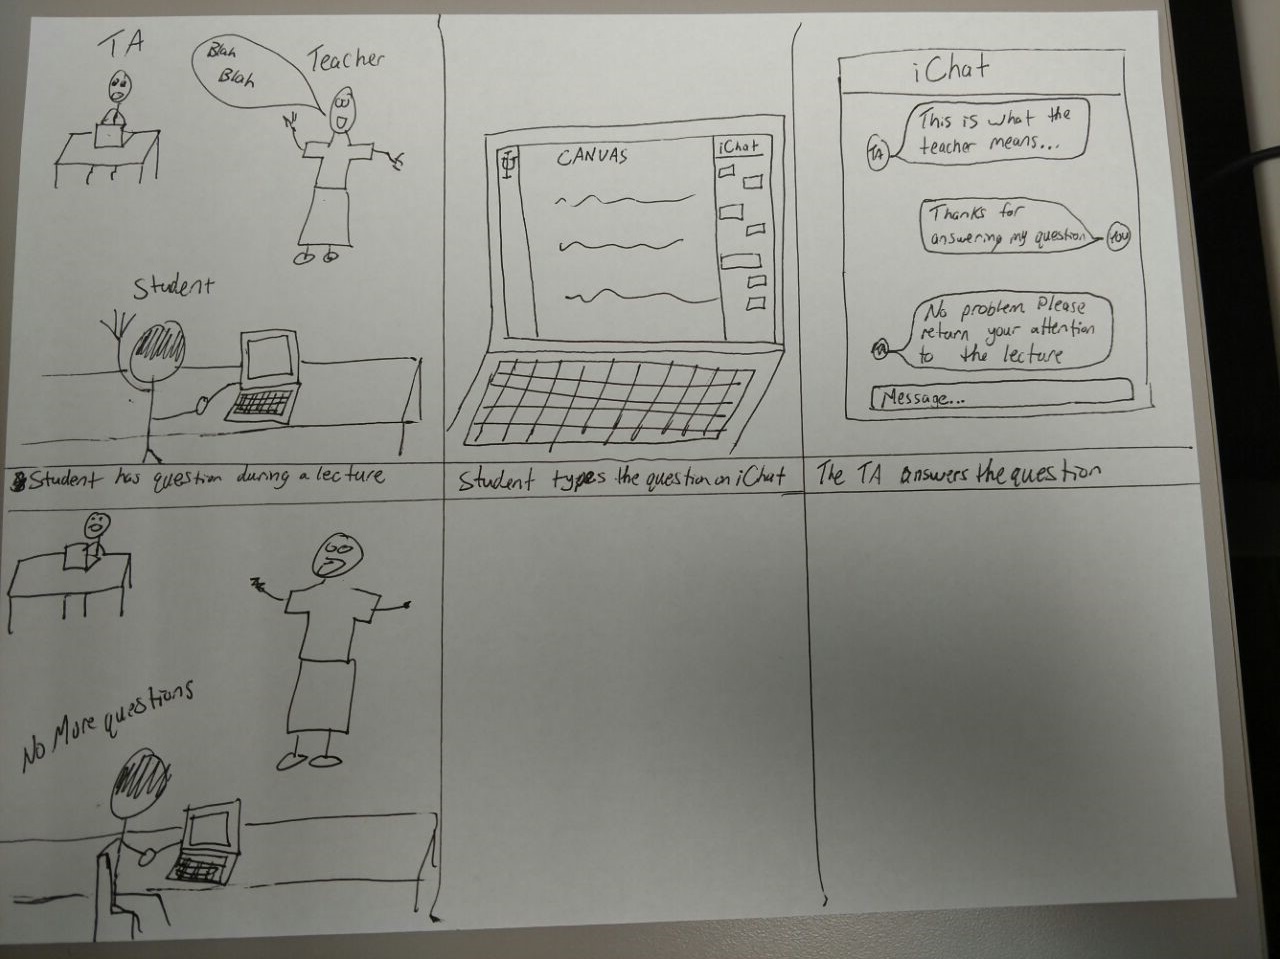 TA
Blah
Blah
Teacher
Student
Student has question during a lecture
CANVAS
iChat
Student types the question on iChat
iChat
This is what the
teacher means...
TA
Thanks for
answering my question
You
No problem Please
return your attention
to the lecture
TA
Message...
The TA answers the question
No More questions